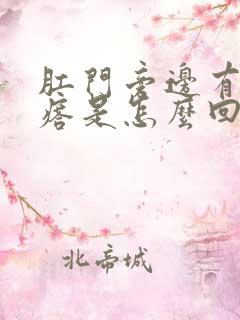 肛門旁邊有
痞是怎麼回
北帝城